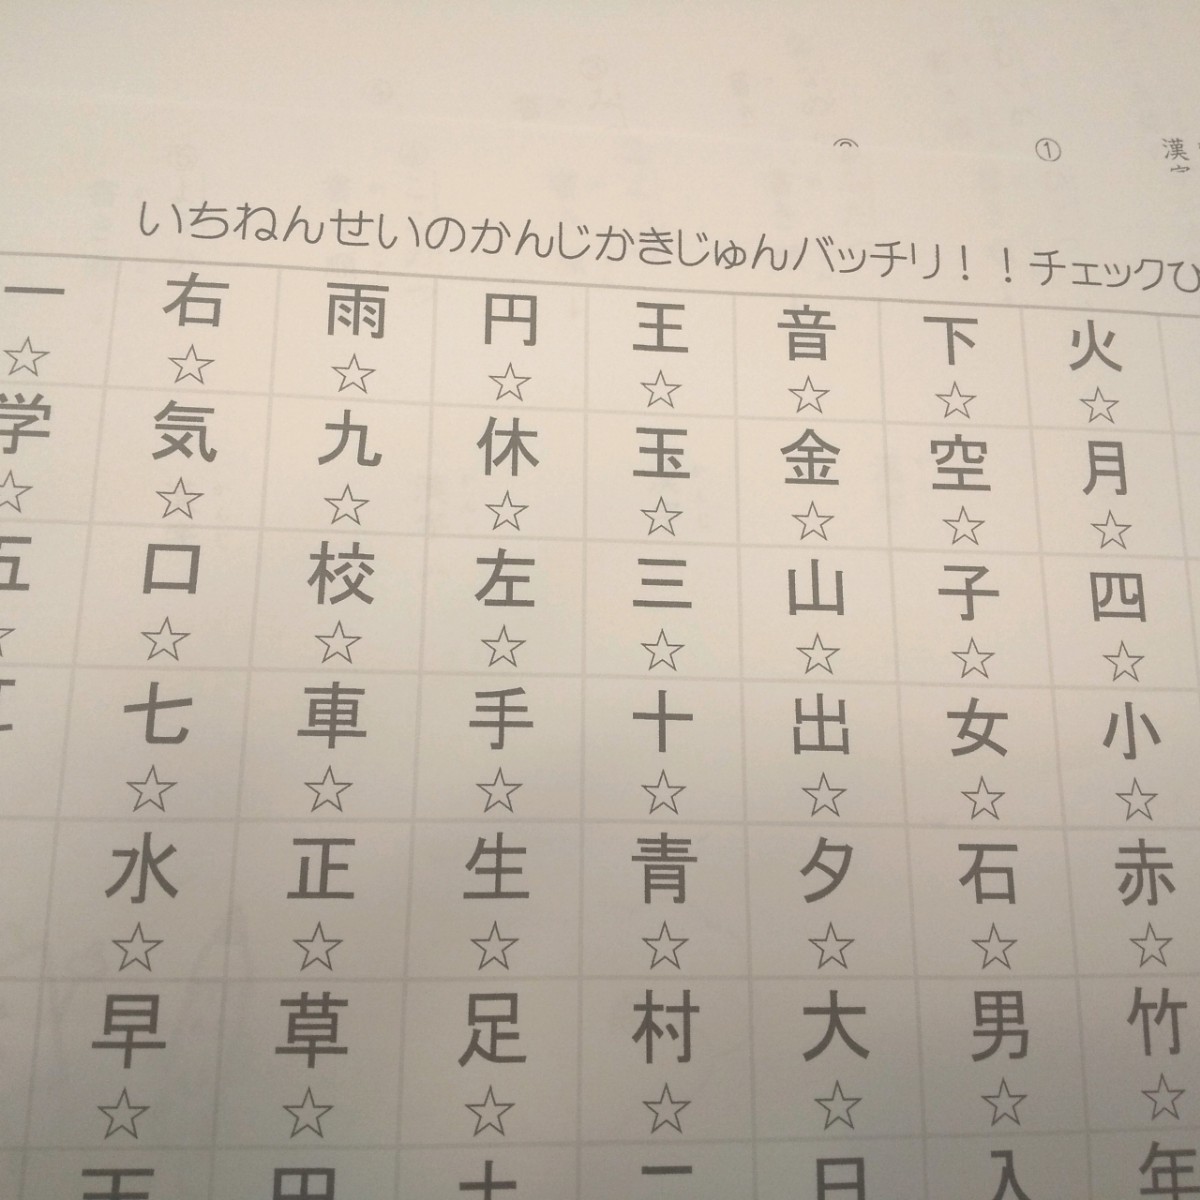 ①
漢
いちねんせいのかんじかきじゅんバッチリ！！チェックひ
一 右 雨 円 王 音 下 火
☆ ☆ ☆ ☆ ☆ ☆ ☆ ☆
学 気 九 休 玉 金 空 月
☆ ☆ ☆ ☆ ☆ ☆ ☆ ☆
五 口 校 左 三 山 子 四
☆ ☆ ☆ ☆ ☆ ☆ ☆ ☆
七 車 手 十 出 女 小
☆ ☆ ☆ ☆ ☆ ☆ ☆
水 正 生 青 夕 石 赤
☆ ☆ ☆ ☆ ☆ ☆ ☆
早 草 足 村 大 男 竹
☆ ☆ ☆ ☆ ☆ ☆ ☆
日 入 年